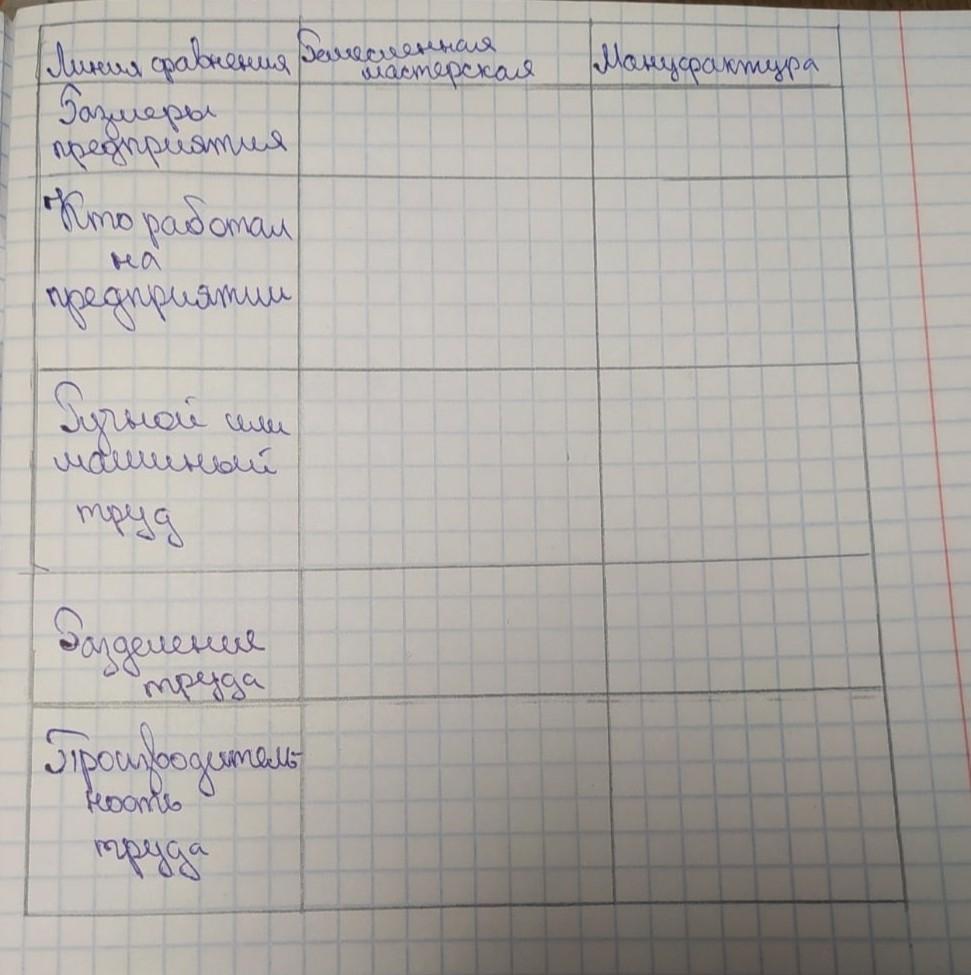 Линия сравнения
Ремесленная
мастерская
Мануфактура
Размеры
предприятия
Кто работал
на
предприятии
Ручной или
машиный
труд
Разделение
труда
Производитель-
ность
труда